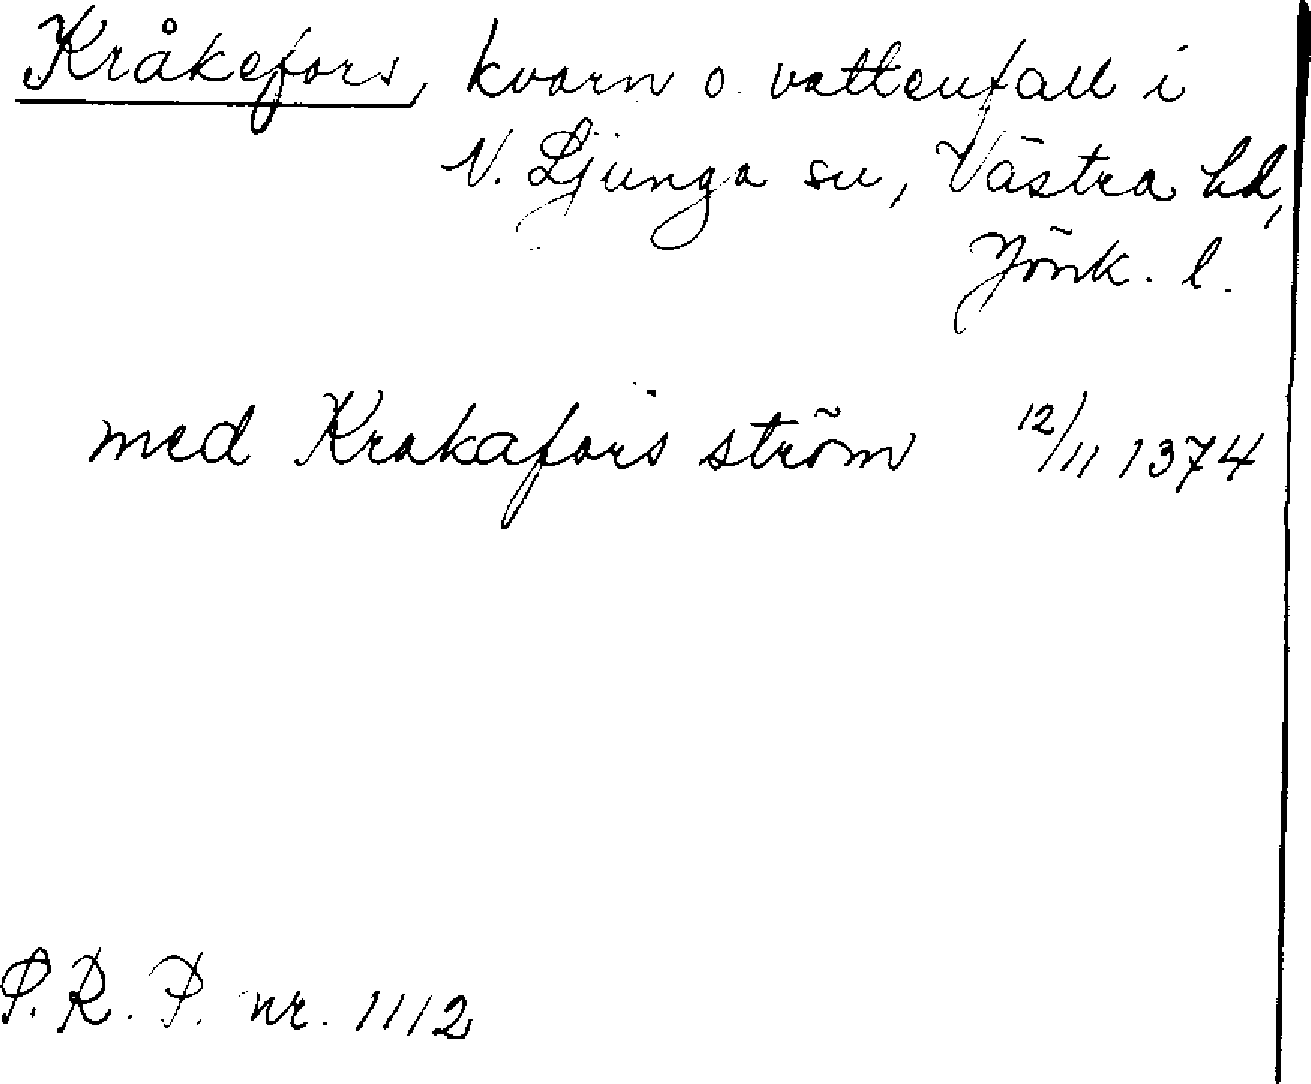 Kråkefors, kvarn o. vattenfall i
N. Ljunga sn, Västra hd,
Jönk. l.
med Krakafors ström 12/11 1374
P. R. P. nr. 1112